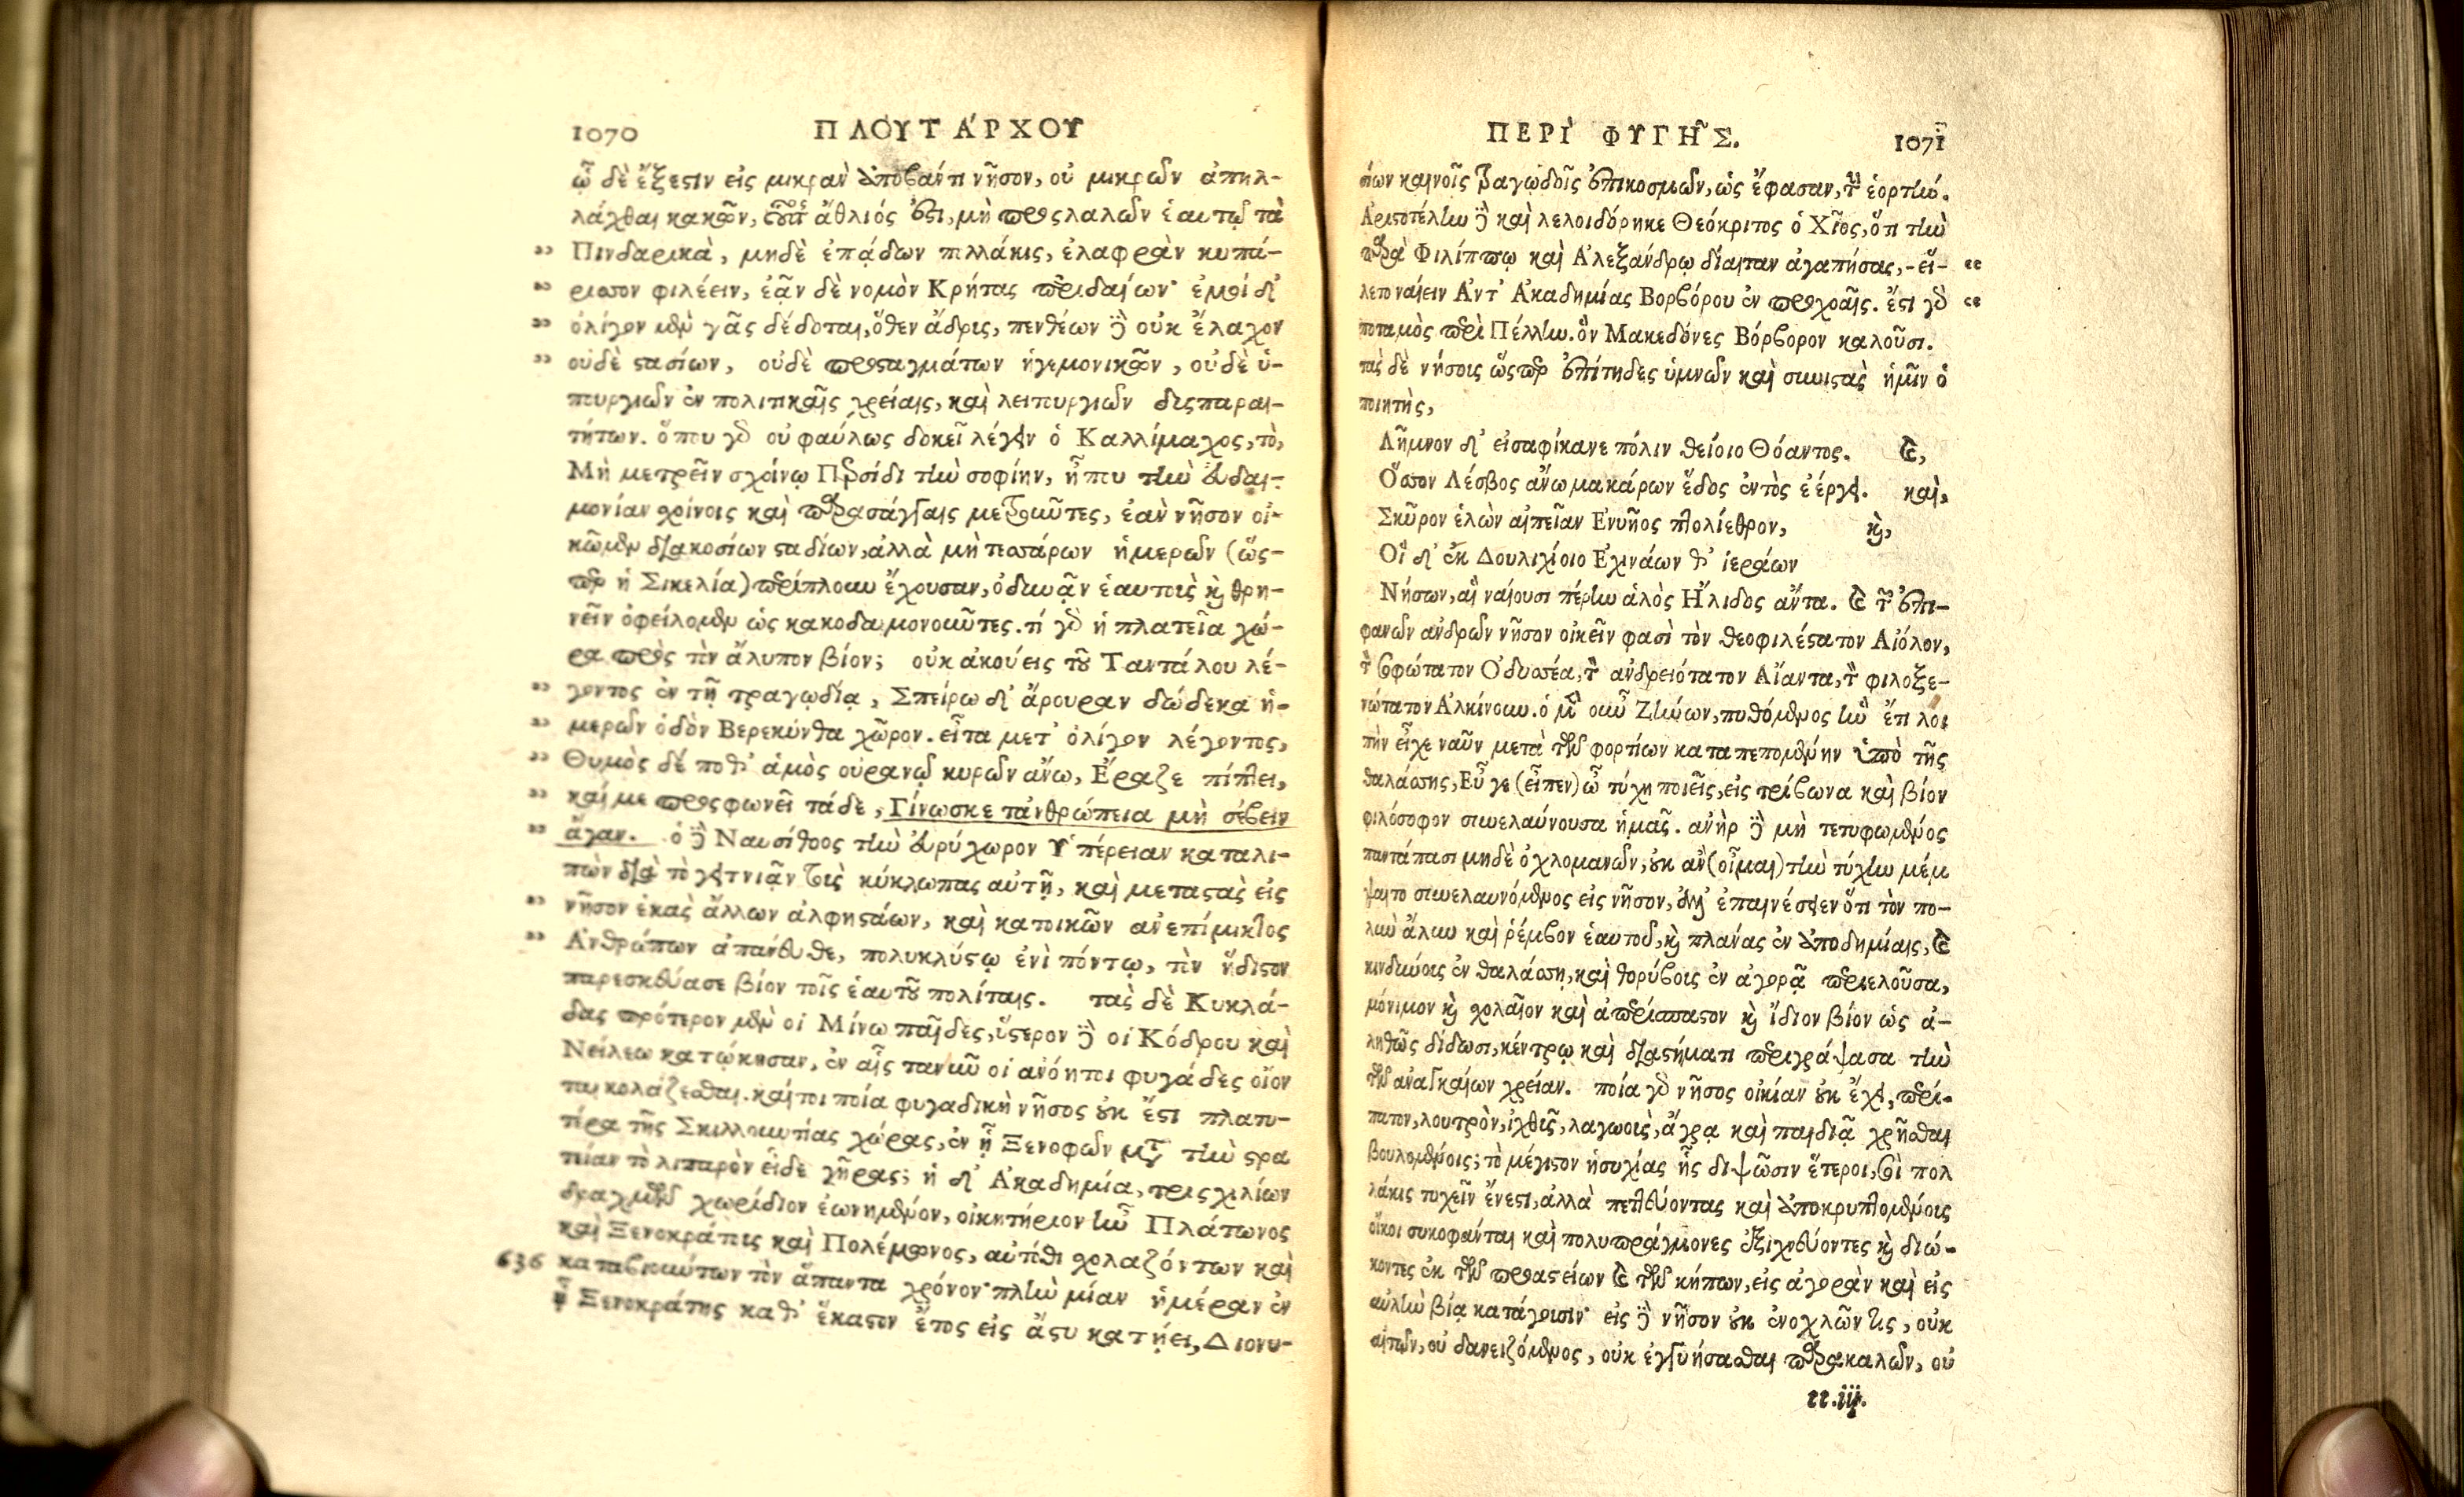 1070 ΠΛΟΥΤΑΡΧΟΥ
ᾧ δὲ ἔξεστιν εἰς μικρὰν ἀποβάντι νῆσον, οὐ μικρῶν ἀπηλ-
λάχθαι κακῶν, οὗτος ἄθλιός ἐστι, μὴ προςλαλῶν ἑαυτῷ τὰ
Πινδαρικὰ, μηδὲ ἐπᾴδων πολλάκις, ἐλαφρὰν κυπά-
ρισσον φιλέειν, ἐᾷν δὲ νομὸν Κρήτας περιδαίων· ἐμοὶ δ'
ὀλίγον μὲν γᾶς δέδοται, ὅθεν ἄδρις, πενθέων δὲ οὐκ ἔλαχον
οὐδὲ στασίων, οὐδὲ προσταγμάτων ἡγεμονικῶν, οὐδὲ ὑ-
πουργιῶν ἐν πολιτικαῖς χρείαις, καὶ λειτουργιῶν δυςπαραι-
τήτων. ὅπου γὰρ οὐ φαύλως δοκεῖ λέγειν ὁ Καλλίμαχος, τὸ,
Μὴ μετρεῖν σχοίνῳ Περσίδι τὴν σοφίην, ἦπου τὴν εὐδαι-
μονίαν σχοίνοις καὶ παρασάγγαις μετροῦντες, ἐὰν νῆσον οἰ-
κῶμεν διακοσίων σταδίων, ἀλλὰ μὴ τεσσάρων ἡμερῶν (ὥς-
περ ἡ Σικελία) περίπλουν ἔχουσαν, ὀδυνᾷν ἑαυτοὺς καὶ θρη-
νεῖν ὀφείλομεν ὡς κακοδαιμονοῦντες. τί γὰρ ἡ πλατεῖα χώ-
ρα πρὸς τὸν ἄλυπον βίον; οὐκ ἀκούεις τοῦ Ταντάλου λέ-
γοντος ἐν τῇ τραγῳδίᾳ, Σπείρω δ' ἄρουραν δώδεκα ἡ-
μερῶν ὁδὸν Βερεκύνθα χῶρον. εἶτα μετ' ὀλίγον λέγοντος,
Θυμὸς δέ ποθ' ἁμὸς οὐρανῷ κυρῶν ἄνω, Ἔραζε πίπτει,
καί με προςφωνεῖ τάδε, Γίνωσκε τἀνθρώπεια μὴ σέβειν
ἄγαν. ὁ δὲ Ναυσίθοος τὴν εὐρύχωρον Ὑπέρειαν καταλι-
πὼν διὰ τὸ γειτνιᾷν τοὺς κύκλωπας αὐτῇ, καὶ μεταστὰς εἰς
νῆσον ἑκὰς ἄλλων ἀλφηστάων, καὶ κατοικῶν ἀνεπίμικτος
Ἀνθρώπων ἀπάνευθε, πολυκλύστῳ ἐνὶ πόντῳ, τὸν ἥδιστον
παρεσκεύασε βίον τοῖς ἑαυτοῦ πολίταις. τὰς δὲ Κυκλά-
δας πρότερον μὲν οἱ Μίνω παῖδες, ὕστερον δὲ οἱ Κόδρου καὶ
Νείλεω κατῴκησαν, ἐν αἷς τανῦν οἱ ἀνόητοι φυγάδες οἴον
ται κολάζεσθαι. καίτοι ποία φυγαδικὴ νῆσος οὐκ ἔστι πλατυ-
τέρα τῆς Σκιλλουντίας χώρας, ἐν ᾗ Ξενοφῶν μετὰ τὴν στρα
τείαν τὸ λιπαρὸν εἶδε γῆρας; ἡ δ' Ἀκαδημία, τρις χιλίων
δραχμῶν χωρίδιον ἐωνημένον, οἰκητήριον ἦν Πλάτωνος
καὶ Ξενοκράτους καὶ Πολέμωνος, αὐτόθι σχολαζόντων καὶ
636 καταβιούντων τὸν ἅπαντα χρόνον· πλὴν μίαν ἡμέραν ἐν
ᾗ Ξενοκράτης καθ' ἕκαστον ἔτος εἰς ἄστυ κατῄει, Διονυ-
ΠΕΡῚ ΦΥΓΗ͂Σ. 1071
σίων καινοῖς τραγῳδοῖς ἐπικοσμῶν, ὡς ἔφασαν, τὴν ἑορτήν.
Ἀριστοτέλην δὲ καὶ λελοιδόρηκε Θεόκριτος ὁ Χῖος, ὅτι τὴν
παρὰ Φιλίππῳ καὶ Ἀλεξάνδρῳ δίαιταν ἀγαπήσας, -εἵ-
λετο ναίειν Ἀντ' Ἀκαδημίας Βορβόρου ἐν προχοαῖς. ἔστι γὰρ
ποταμὸς περὶ Πέλλην. ὃν Μακεδόνες Βόρβορον καλοῦσι.
τὰς δὲ νήσοις ὥσπερ ἐπίτηδες ὑμνῶν καὶ συνιστὰς ἡμῖν ὁ
ποιητὴς,
Λῆμνον δ' εἰσαφίκανε πόλιν θείοιο Θόαντος. καὶ,
Ὅσσον Λέσβος ἄνω μακάρων ἕδος ἐντὸς ἐέργει. καὶ,
Σκῦρον ἑλὼν αἰπεῖαν Ἐνυῆος πτολίεθρον, καὶ,
Οἳ δ' ἐκ Δουλιχίοιο Ἐχινάων θ' ἱεράων
Νήσων, αἳ ναίουσι πέρην ἁλὸς Ἤλιδος ἄντα. καὶ τῶν ἐπι-
φανῶν ἀνδρῶν νῆσον οἰκεῖν φασὶ τὸν θεοφιλέστατον Αἰόλον,
τὸν σοφώτατον Ὀδυσσέα, τὸν ἀνδρειότατον Αἴαντα, τὸν φιλοξε-
νώτατον Ἀλκίνουν. ὁ μὲν οὖν Ζήνων, πυθόμενος ἣν ἔτι λοι
πὴν εἶχε ναῦν μετὰ τῶν φορτίων καταπεπομένην ὑπὸ τῆς
θαλάσσης, Εὖ γε (εἶπεν) ὦ τύχη ποιεῖς, εἰς τρίβωνα καὶ βίον
φιλόσοφον συνελαύνουσα ἡμᾶς. ἀνὴρ δὲ μὴ τετυφωμένος
παντάπασι μηδὲ ὀχλομανῶν, οὐκ ἂν (οἶμαι) τὴν τύχην μέμ
ψαιτο συνελαυνόμενος εἰς νῆσον, ἀλλ' ἐπαινέσειεν ὅτι τὸν πο-
λὺν ἄλυν καὶ ῥέμβον ἑαυτοῦ, καὶ πλάνας ἐν ἀποδημίαις, καὶ
κινδύνοις ἐν θαλάσσῃ, καὶ θορύβοις ἐν ἀγορᾷ περιελοῦσα,
μόνιμον καὶ σχολαῖον καὶ ἀπερίσπαστον καὶ ἴδιον βίον ὡς ἀ-
ληθῶς δίδωσι, κέντρῳ καὶ διαστήματι περιγράψασα τὴν
τῶν ἀναγκαίων χρείαν. ποία γὰρ νῆσος οἰκίαν οὐκ ἔχει, περί-
πατον, λουτρὸν, ἰχθῦς, λαγωοὺς, ἄγρᾳ καὶ παιδιᾷ χρῆσθαι
βουλομένοις; τὸ μέγιστον ἡσυχίας ἧς διψῶσιν ἕτεροι, σοὶ πολ
λάκις τυχεῖν ἔνεστι, ἀλλὰ πεττεύοντας καὶ ἀποκρυπτομένοις
οἴκοι συκοφάνται καὶ πολυπράγμονες ἐξιχνεύοντες καὶ διώ-
κοντες ἐκ τῶν προαστείων καὶ τῶν κήπων, εἰς ἀγορὰν καὶ εἰς
αὐλὴν βίᾳ κατάγουσιν· εἰς δὲ νῆσον οὐκ ἐνοχλῶν τις, οὐκ
αἰτῶν, οὐ δανειζόμενος, οὐκ ἐγγυήσασθαι παρακαλῶν, οὐ